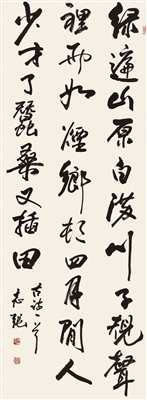 綠遍山原白滿川子規聲
裡雨如煙鄉村四月閒人
少才了蠶桑又插田
古詩一首